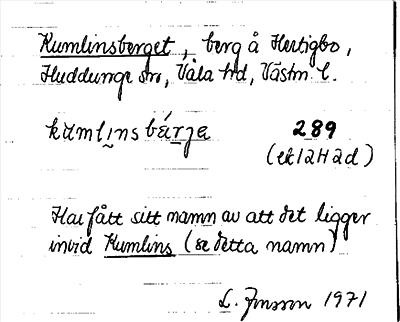 Kumlinsberget, berg å Hertigbo,
Huddunge sn, Våla hd, Västm. l.
kùmlinsbá́rje 289
(ek12H2d)
Har fått sitt namn av att det ligger
invid Kumlins (se detta namn)
L. Jonsson 1971